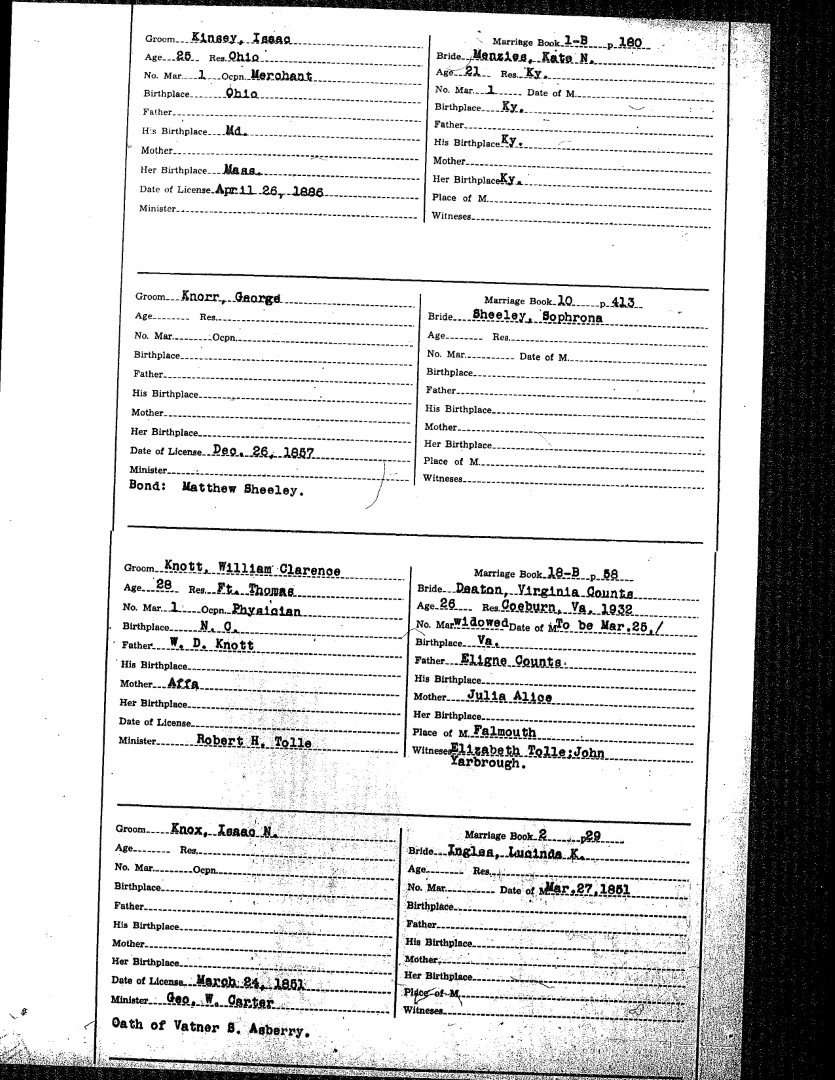 Groom Kinsey, Isaac
Age 25 Res. Ohio
No. Mar. 1 Ocpn. Merchant
Birthplace Ohio
Father
His Birthplace Md.
Mother
Her Birthplace Mass.
Date of License April 26, 1886
Minister
Marriage Book 1-B p. 180
Bride Menzies, Kate N.
Age 21 Res. Ky.
No. Mar. 1 Date of M.
Birthplace Ky.
Father
His Birthplace Ky.
Mother
Her Birthplace Ky.
Place of M.
Witneses
Groom Knorr, George
Age Res.
No. Mar. Ocpn.
Birthplace
Father
His Birthplace
Mother
Her Birthplace
Date of License Dec. 26, 1857
Minister
Bond: Matthew Sheeley.
Marriage Book 10 p 413
Bride Sheeley, Sophrona
Age Res.
No. Mar. Date of M.
Birthplace
Father
His Birthplace
Mother
Her Birthplace
Place of M.
Witneses
Groom Knott, William Clarence
Age 28 Res. Ft. Thomas
No. Mar. 1 Ocpn. Physician
Birthplace N. C.
Father W. D. Knott
His Birthplace
Mother Affa
Her Birthplace
Date of License
Minister Robert H. Tolle
Marriage Book 18-B p. 58
Bride Deaton, Virginia Counts
Age 26 Res. Coeburn, Va. 1932
No. Mar. widowed Date of M. To be Mar.25,/
Birthplace Va.
Father Eligne Counts.
His Birthplace
Mother Julia Alice
Her Birthplace
Place of M. Falmouth
Witneses Elizabeth Tolle;John
Yarbrough.
Groom Knox, Isaac N.
Age Res.
No. Mar. Ocpn.
Birthplace
Father
His Birthplace
Mother
Her Birthplace
Date of License March 24, 1851
Minister Geo. W. Carter
Oath of Vatner S. Asberry.
Marriage Book 2 p29
Bride Inglea, Lucinda K.
Age Res.
No. Mar. Date of M. Mar.27,1851
Birthplace
Father
His Birthplace
Mother
Her Birthplace
Place of M.
Witneses